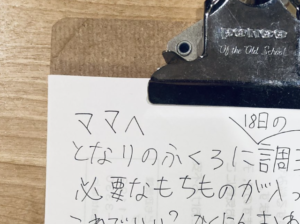 Of the Old School
18日の
ママへ
となりのふくろに調
必要なもちものが入
これでいい?